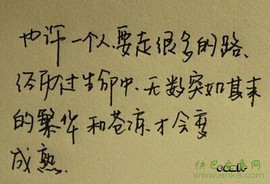 也许一个人，要走很多的路，
经历过生命中无数突如其来
的繁华和苍凉才会变
成熟.